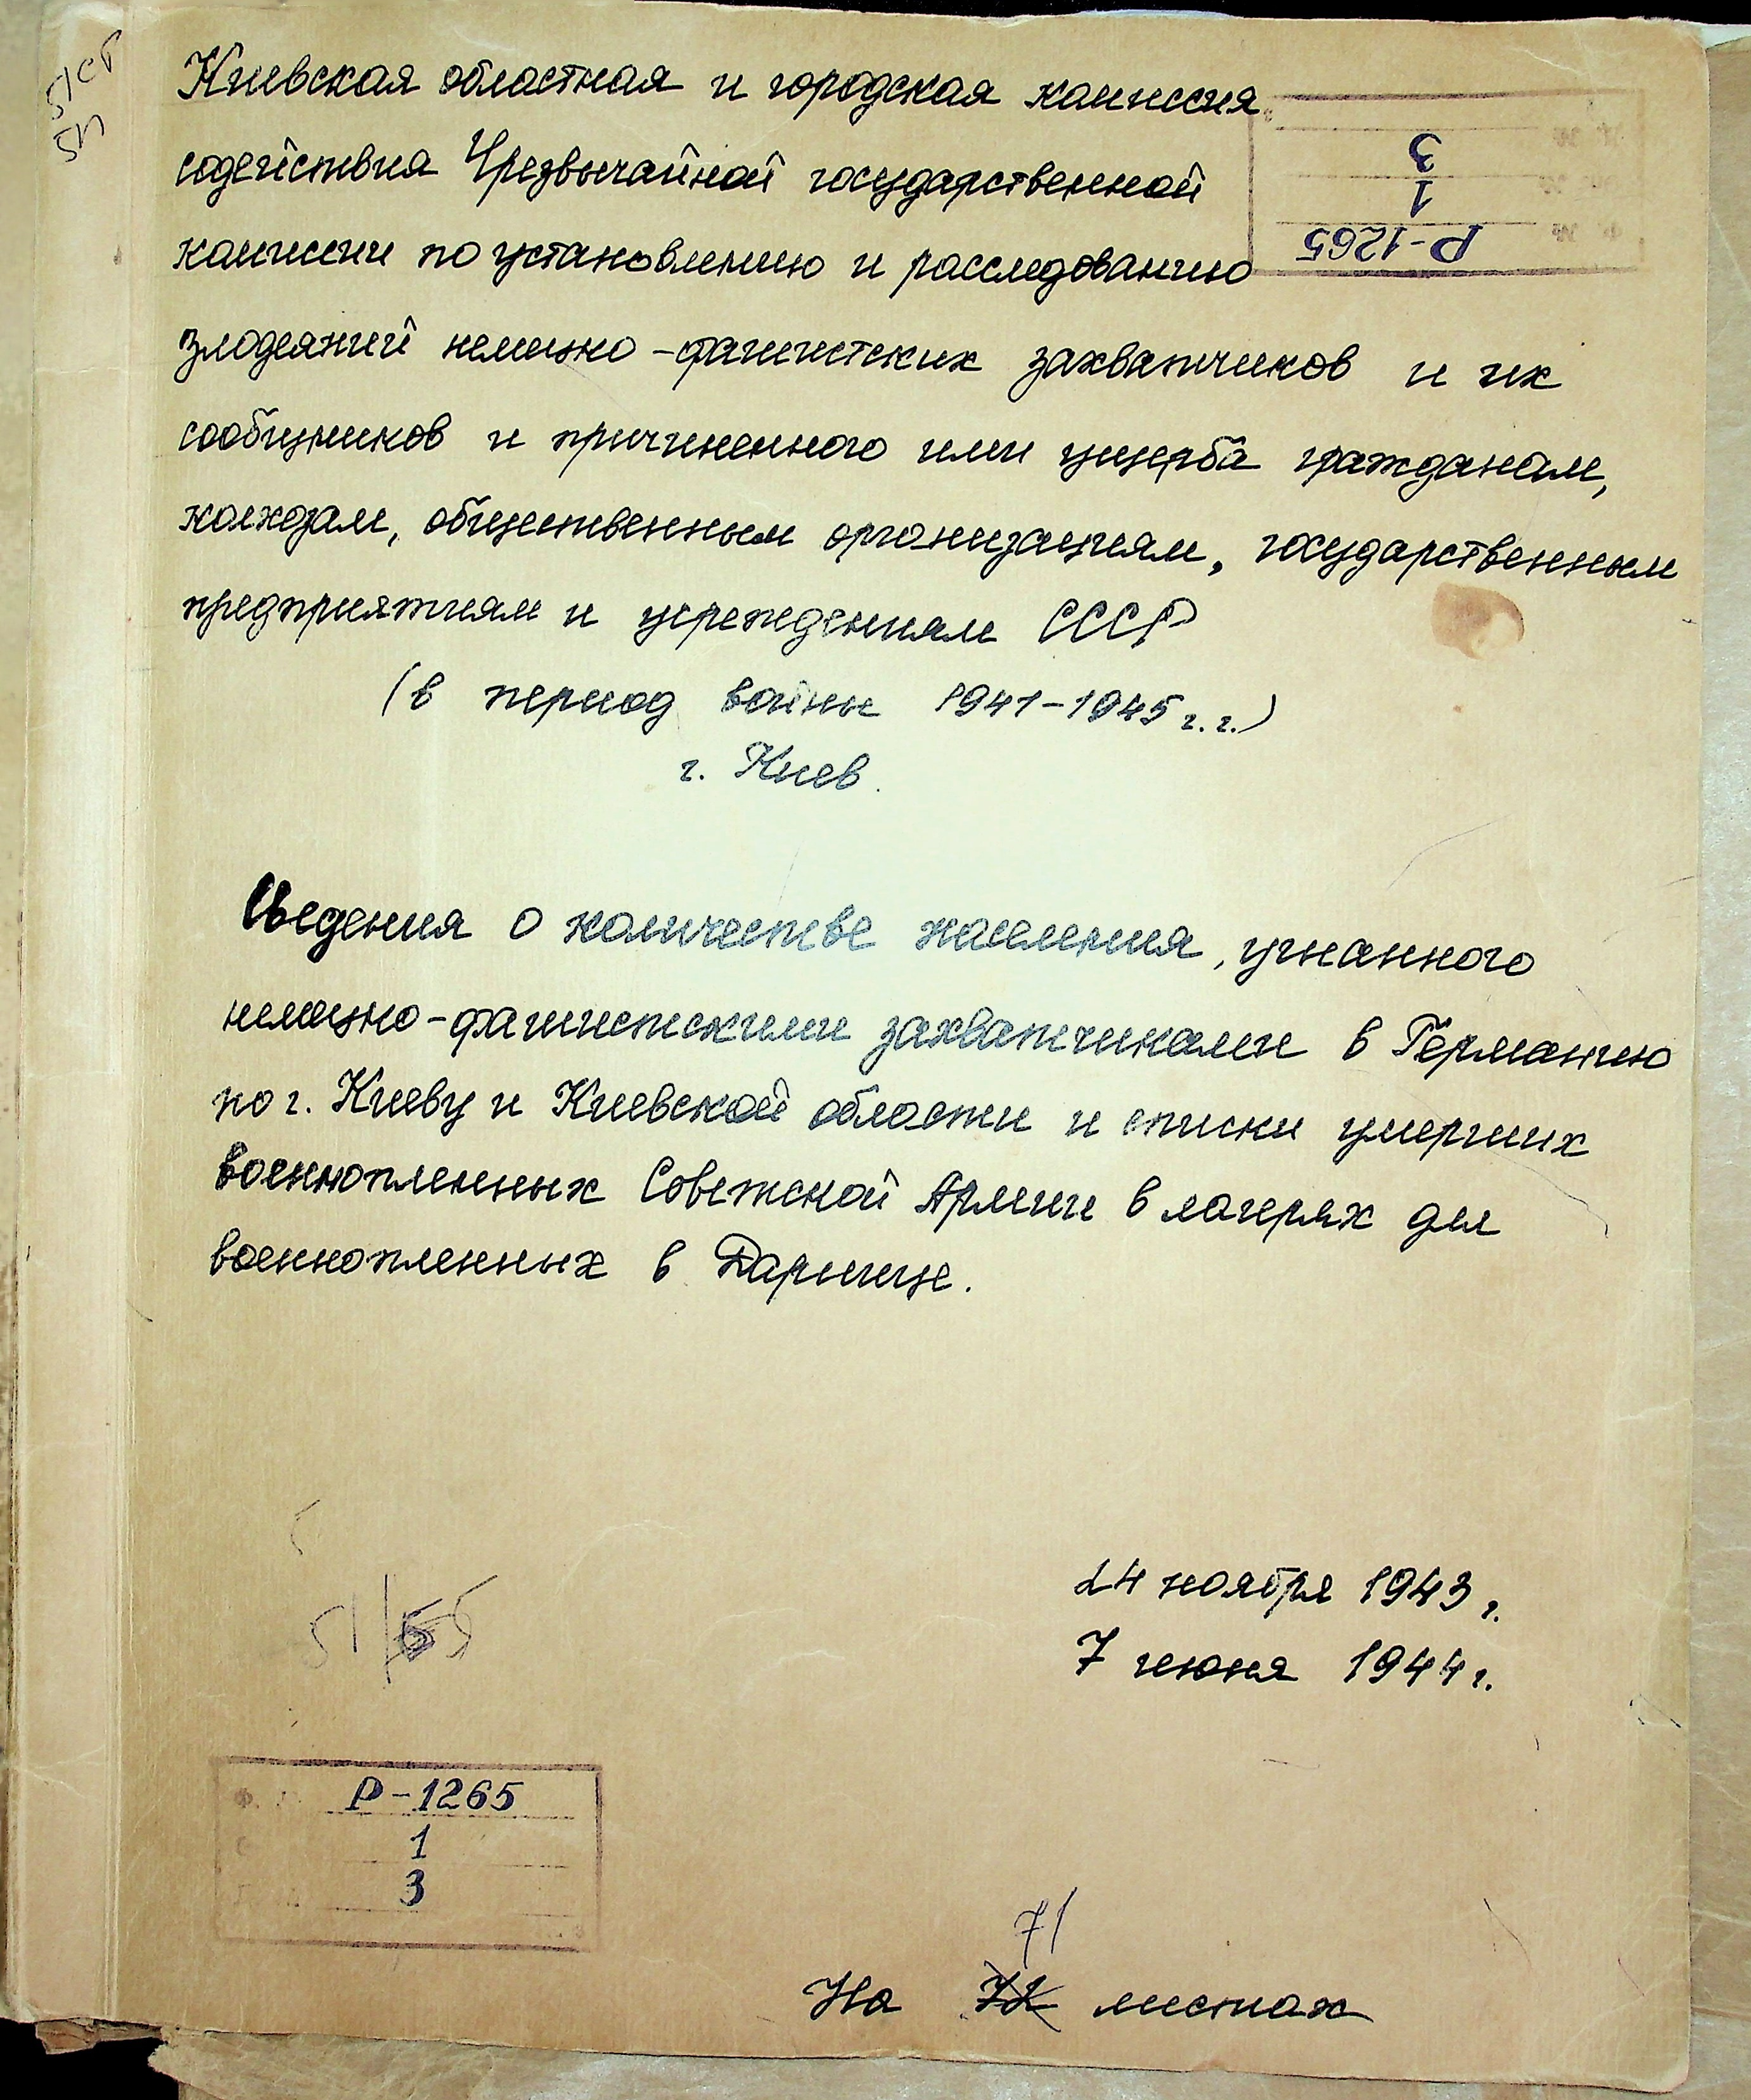 Киевская областная и городская комиссия
содействия Чрезвычайной государственной
комиссии по установлению и расследованию
злодеяний немецко-фашистских захватчиков и их
сообщников и причиненного ими ущерба гражданам,
колхозам, общественным организациям, государственным
предприятиям и учреждениям СССР
(в период войны 1941-1945 г.г.)
г. Киев.
Р-1265
1
3
Сведения о количестве населения, угнанного
немецко-фашистскими захватчиками в Германию
по г. Киеву и Киевской области и списки умерших
военнопленных Советской Армии в лагерях для
военнопленных в Дарнице.
24 ноября 1943 г.
7 июня 1944 г.
51/55
Р-1265
1
3
71
На 72 листах